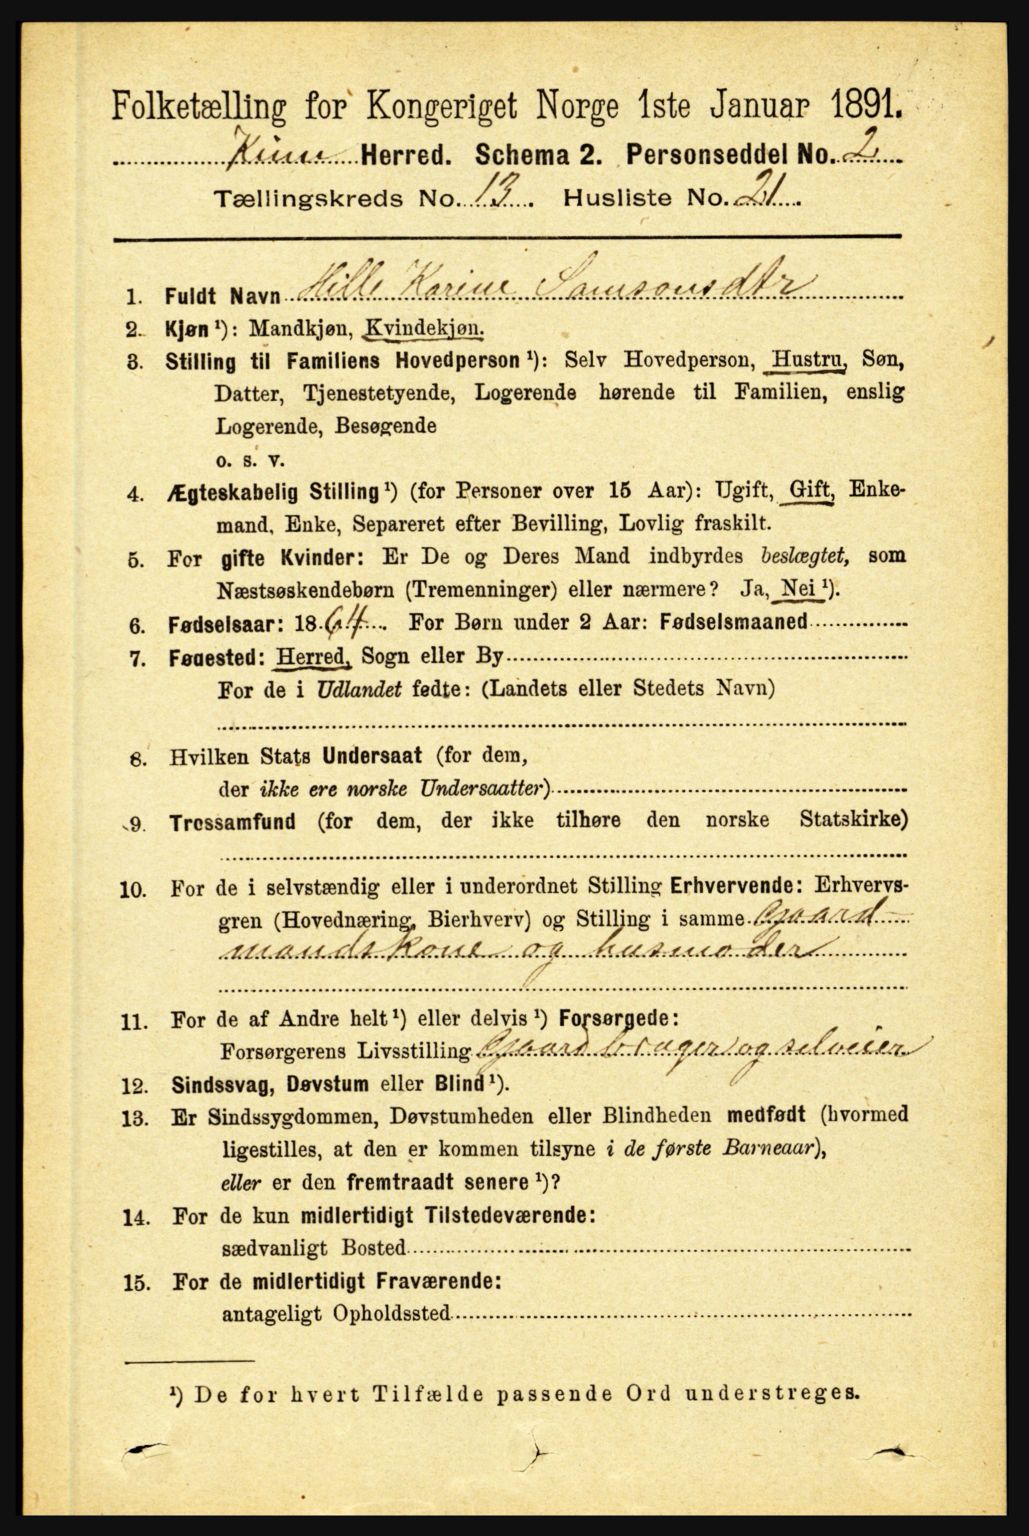 Folketælling for Kongeriget Norge 1ste Januar 1891.
Kinn Herred. Schema 2. Personseddel No. 2
Tællingskreds No. 13. Husliste No. 21.
1. Fuldt Navn Hille Karine Samsonsdtr
2. Kjøn ¹): Mandkjøn, Kvindekjøn.
3. Stilling til Familiens Hovedperson ¹): Selv Hovedperson, Hustru, Søn,
Datter, Tjenestetyende, Logerende hørende til Familien, enslig
Logerende, Besøgende
o. s. v.
4. Ægteskabelig Stilling ¹) (for Personer over 15 Aar): Ugift, Gift, Enke-
mand, Enke, Separeret efter Bevilling, Lovlig fraskilt.
5. For gifte Kvinder: Er De og Deres Mand indbyrdes beslægtet, som
Næstsøskendebørn (Tremenninger) eller nærmere? Ja, Nei ¹).
6. Fødselsaar: 1864. For Børn under 2 Aar: Fødselsmaaned
7. Føuested: Herred, Sogn eller By
For de i Udlandet fødte: (Landets eller Stedets Navn)
8. Hvilken Stats Undersaat (for dem,
der ikke ere norske Undersaatter)
9. Trossamfund (for dem, der ikke tilhøre den norske Statskirke)
10. For de i selvstændig eller i underordnet Stilling Erhvervende: Erhvervs-
gren (Hovednæring, Bierhverv) og Stilling i samme Gaard-
mandskone og husmoder
11. For de af Andre helt ¹) eller delvis ¹) Forsørgede:
Forsørgerens Livsstilling Gaardbruger og selveier
12. Sindssvag, Døvstum eller Blind ¹).
13. Er Sindssygdommen, Døvstumheden eller Blindheden medfødt (hvormed
ligestilles, at den er kommen tilsyne i de første Barneaar),
eller er den fremtraadt senere ¹)?
14. For de kun midlertidigt Tilstedeværende:
sædvanligt Bosted
15. For de midlertidigt Fraværende:
antageligt Opholdssted
¹) De for hvert Tilfælde passende Ord understreges.